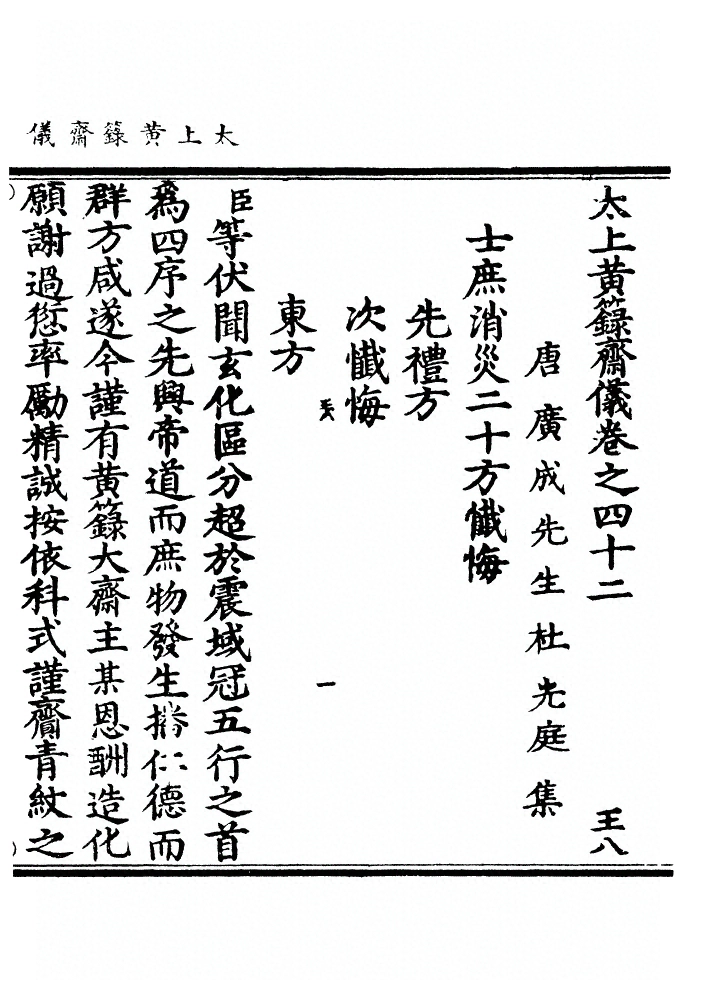 太上黄籙齋儀
太上黄籙齋儀卷之四十二 王八
唐廣成先生杜光庭集
士庶消災二十方懺悔
先禮方
次懺悔
一
東方
臣等伏聞玄化區分超於震域冠五行之首
爲四序之先興帝道而庶物發生播仁德而
群方咸遂今謹有黄籙大齋主某恩酬造化
願謝過愆率勵精誠按依科式謹齎青紋之